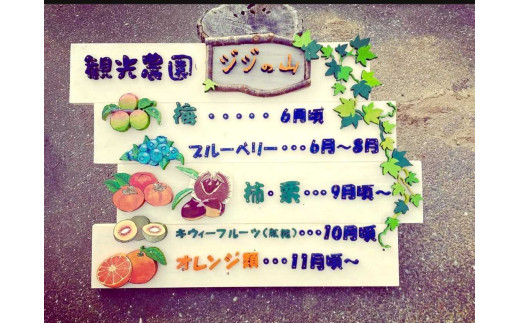 観光農園
ジジの山
梅・・・・・6月頃
ブルーベリー・・・6月〜8月
柿・栗・・・9月頃〜
キウィーフルーツ(紅純)・・・10月頃
オレンジ類・・・11月頃〜